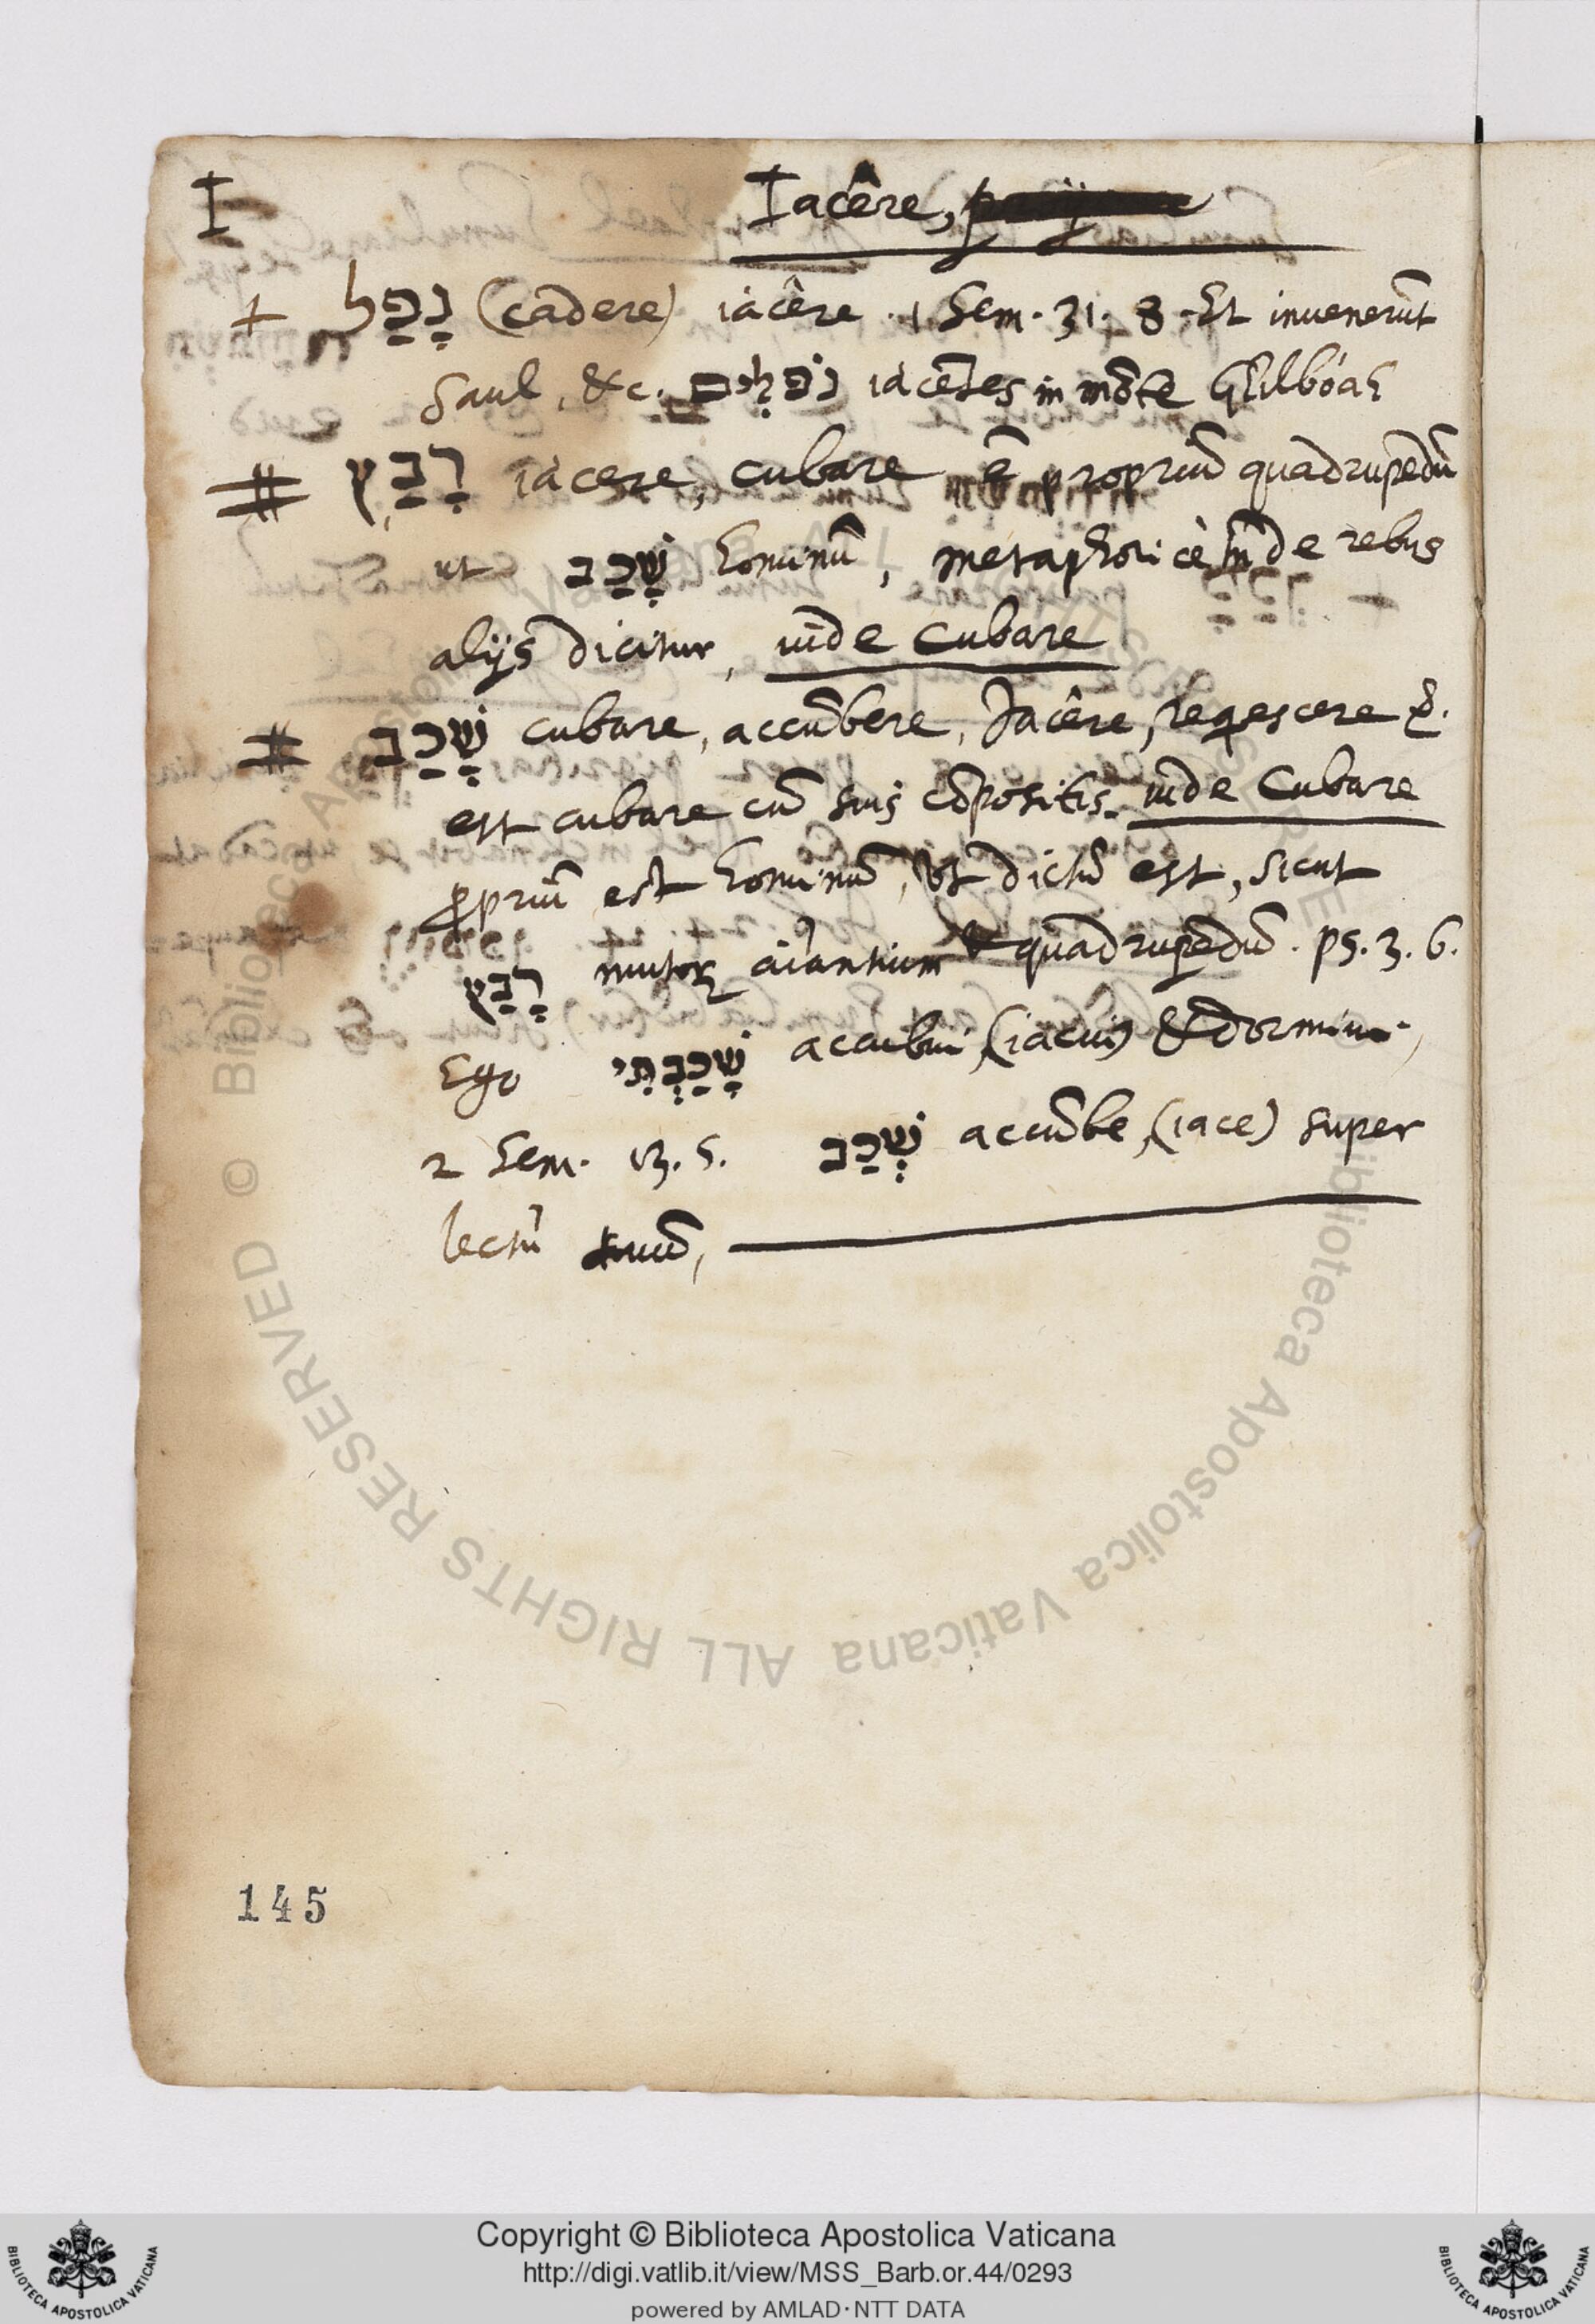 I
Iacêre,
+ נָפַל (cadere) iacêre . 1 Sem. 31. 8. Et inuenerūt
Saul, &c. נֹפְלִים iacētes in mōte Ghilbóah
# רָבַץ iacere, cubare ē propriū quadrupedū
ut שָׁכַב hominū, metaphoricè tn̄ de rebus
alijs dicitur, uide Cubare
# שָׁכַב cubare, accūbere, Jacêre, reqescere
est cubare cū suis cōpositis. uide Cubare
ꝓpriū est hominū, Vt dictū est, sicut
רָבַץ mutoꝝ aīantium & quadrupedū. ps. 3. 6.
Ego שָׁכַבְתִּי accubui, (iacui) & dormiui.
2 Sem. 13. 5. שְׁכַב accūbe, (iace) super
lectū tuū,
145
Copyright © Biblioteca Apostolica Vaticana
http://digi.vatlib.it/view/MSS_Barb.or.44/0293
powered by AMLAD·NTT DATA
BIBLIOTECA APOSTOLICA VATICANA
BIBLIOTECA APOSTOLICA VATICANA
© Biblioteca Apostolica Vaticana ALL RIGHTS RESERVED